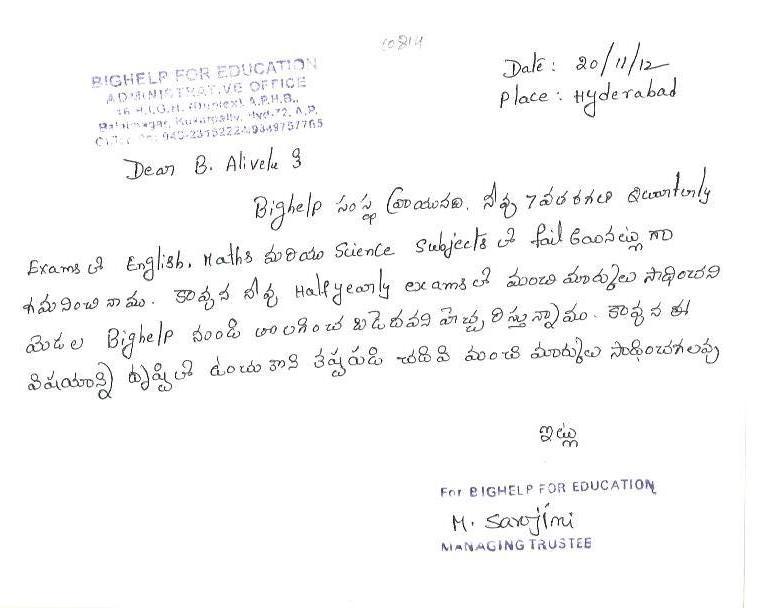 10814
BIGHELP FOR EDUCATION
ADMINISTRATIVE OFFICE
Date: 20/11/12
Place: Hyderabad
Dear B. Alivelu కి
Bighelp సంస్థ వ్రాయునది. నీవు 7వ తరగతి Quarterly
Exams లో English, Maths మరియు Science Subjects లో fail అయినట్లుగా
గమనించినాము. కావున నీవు Halfyearly exams లో మంచి మార్కులు సాధించని
యెడల Bighelp నుండి తొలగించబడెదవని హెచ్చరిస్తున్నాము. కావున ఈ
విషయాన్ని దృష్టిలో ఉంచుకొని తప్పకుండా చదివి మంచి మార్కులు సాధించగలవు
ఇట్లు
For BIGHELP FOR EDUCATION
M. Sarojini
MANAGING TRUSTEE